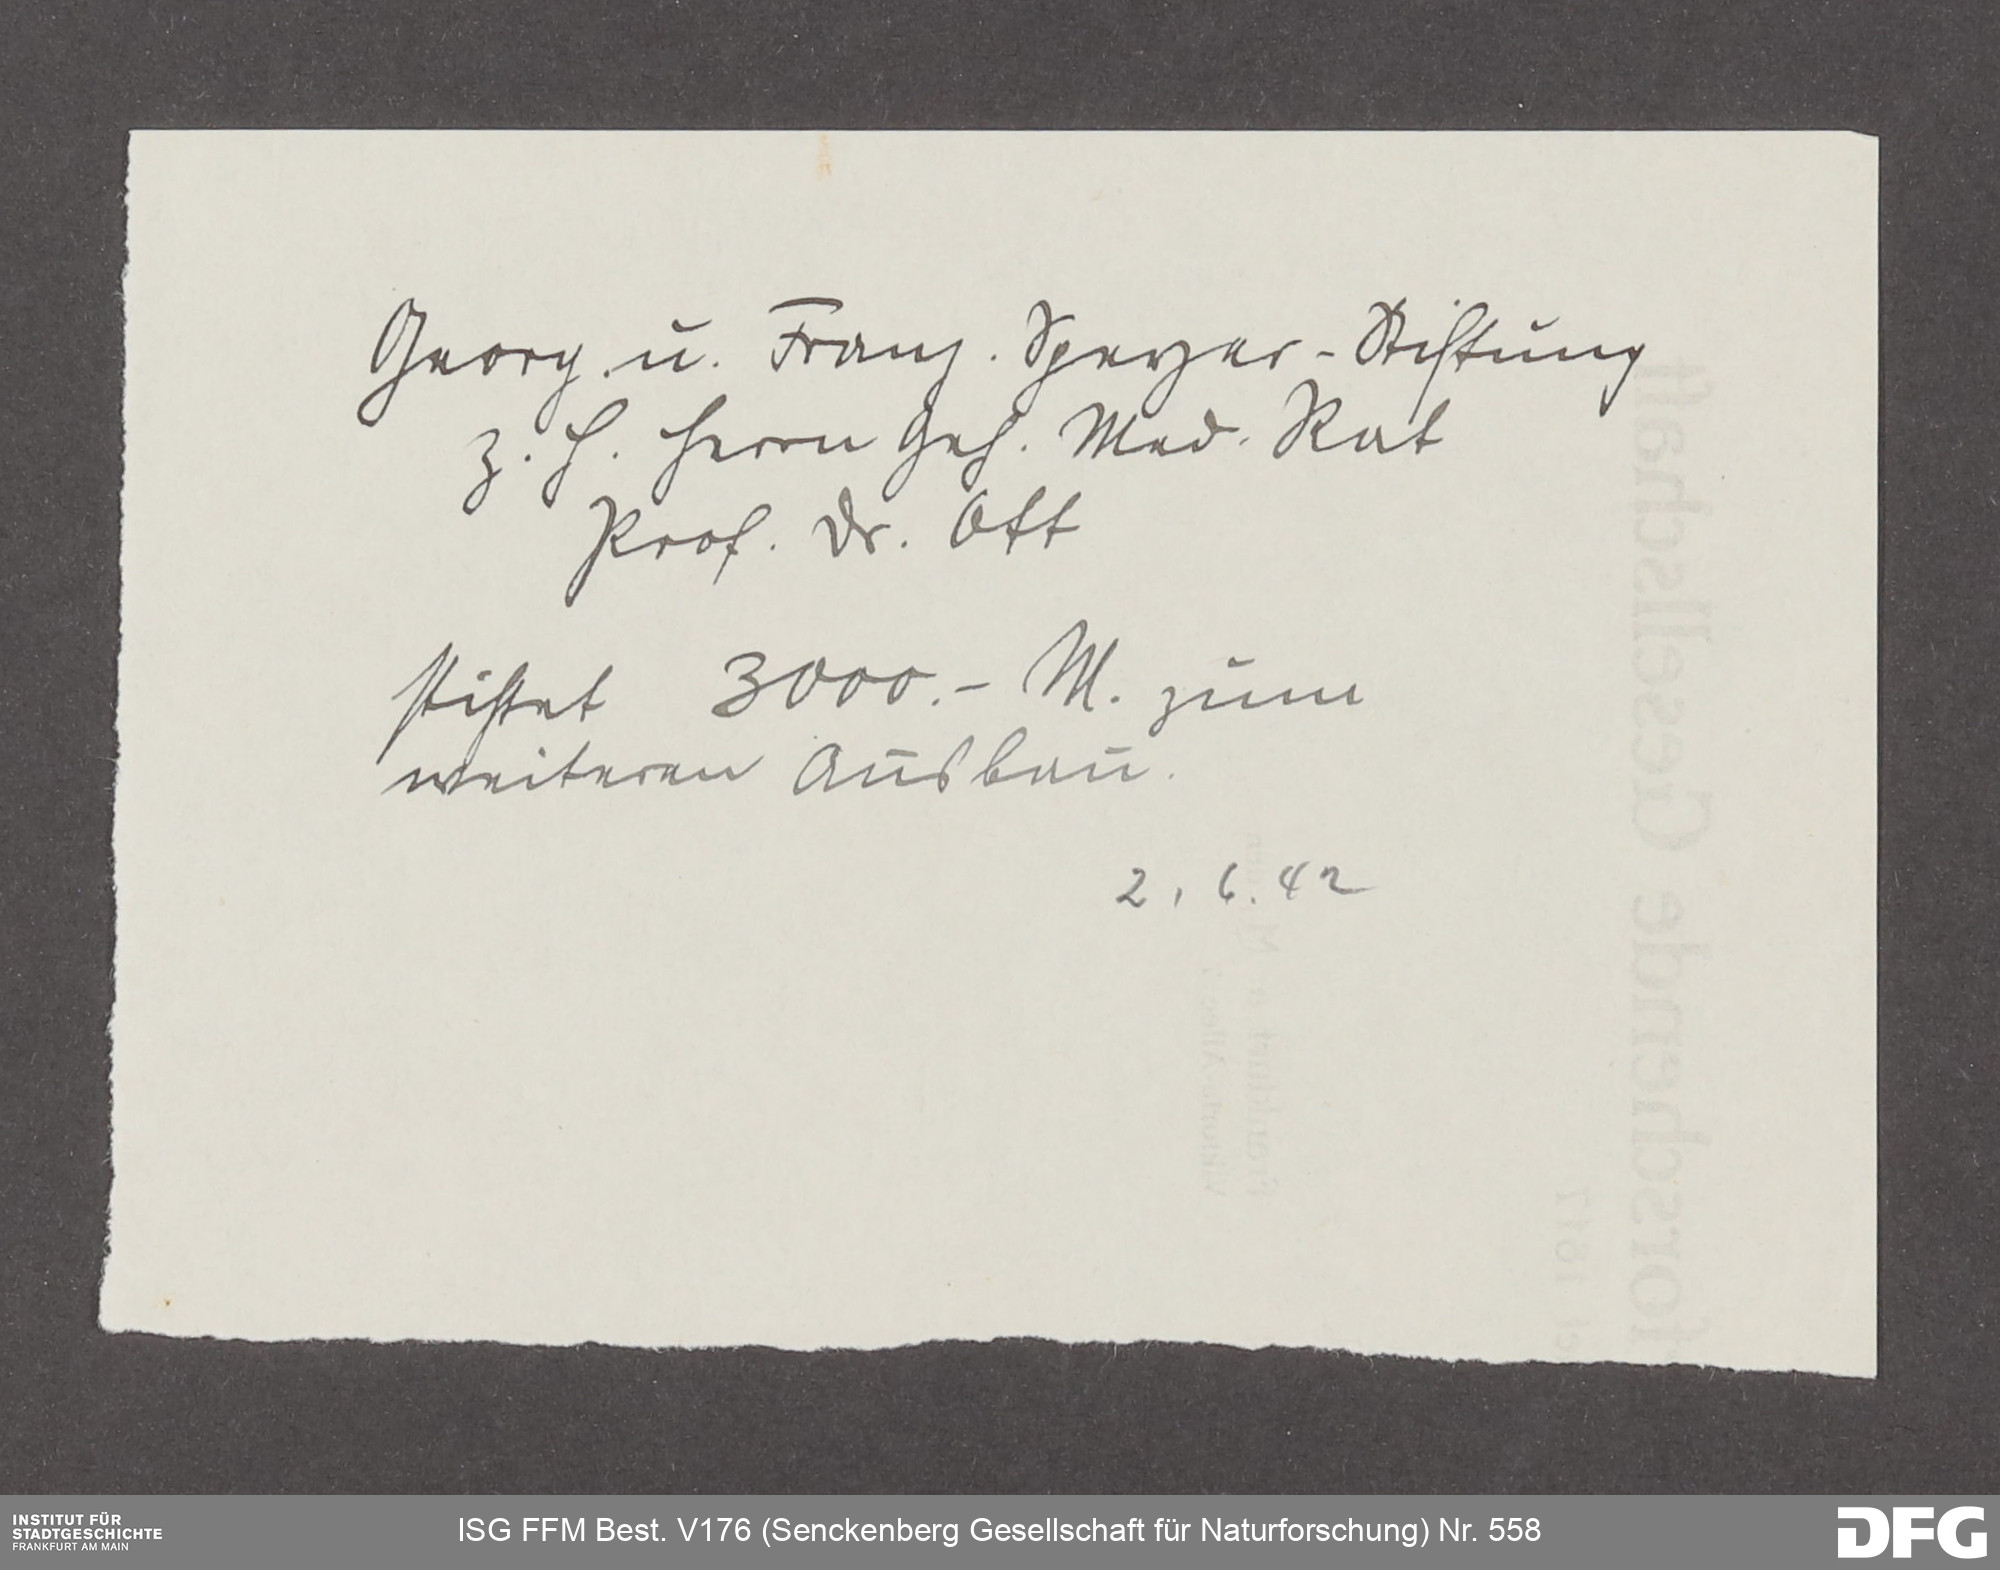 Georg u. Franz. Speyer-Stiftung
z. H. Herrn Geh. Med. Rat
Prof. Dr. Ott
stiftet 3000.- M. zum
weiteren Ausbau.
2. 6. 42
forschende Gesellschaft
et 1817
Frankfurt a. M
Viktoria-Allee 7
INSTITUT FÜR
STADTGESCHICHTE
FRANKFURT AM MAIN
ISG FFM Best. V176 (Senckenberg Gesellschaft für Naturforschung) Nr. 558
DFG